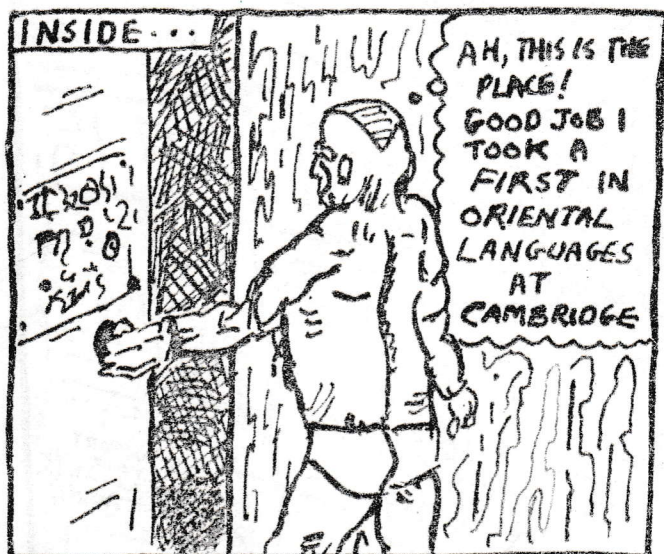 INSIDE...
AH, THIS IS THE
PLACE!
GOOD JOB I
TOOK A
FIRST IN
ORIENTAL
LANGUAGES
AT
CAMBRIDGE